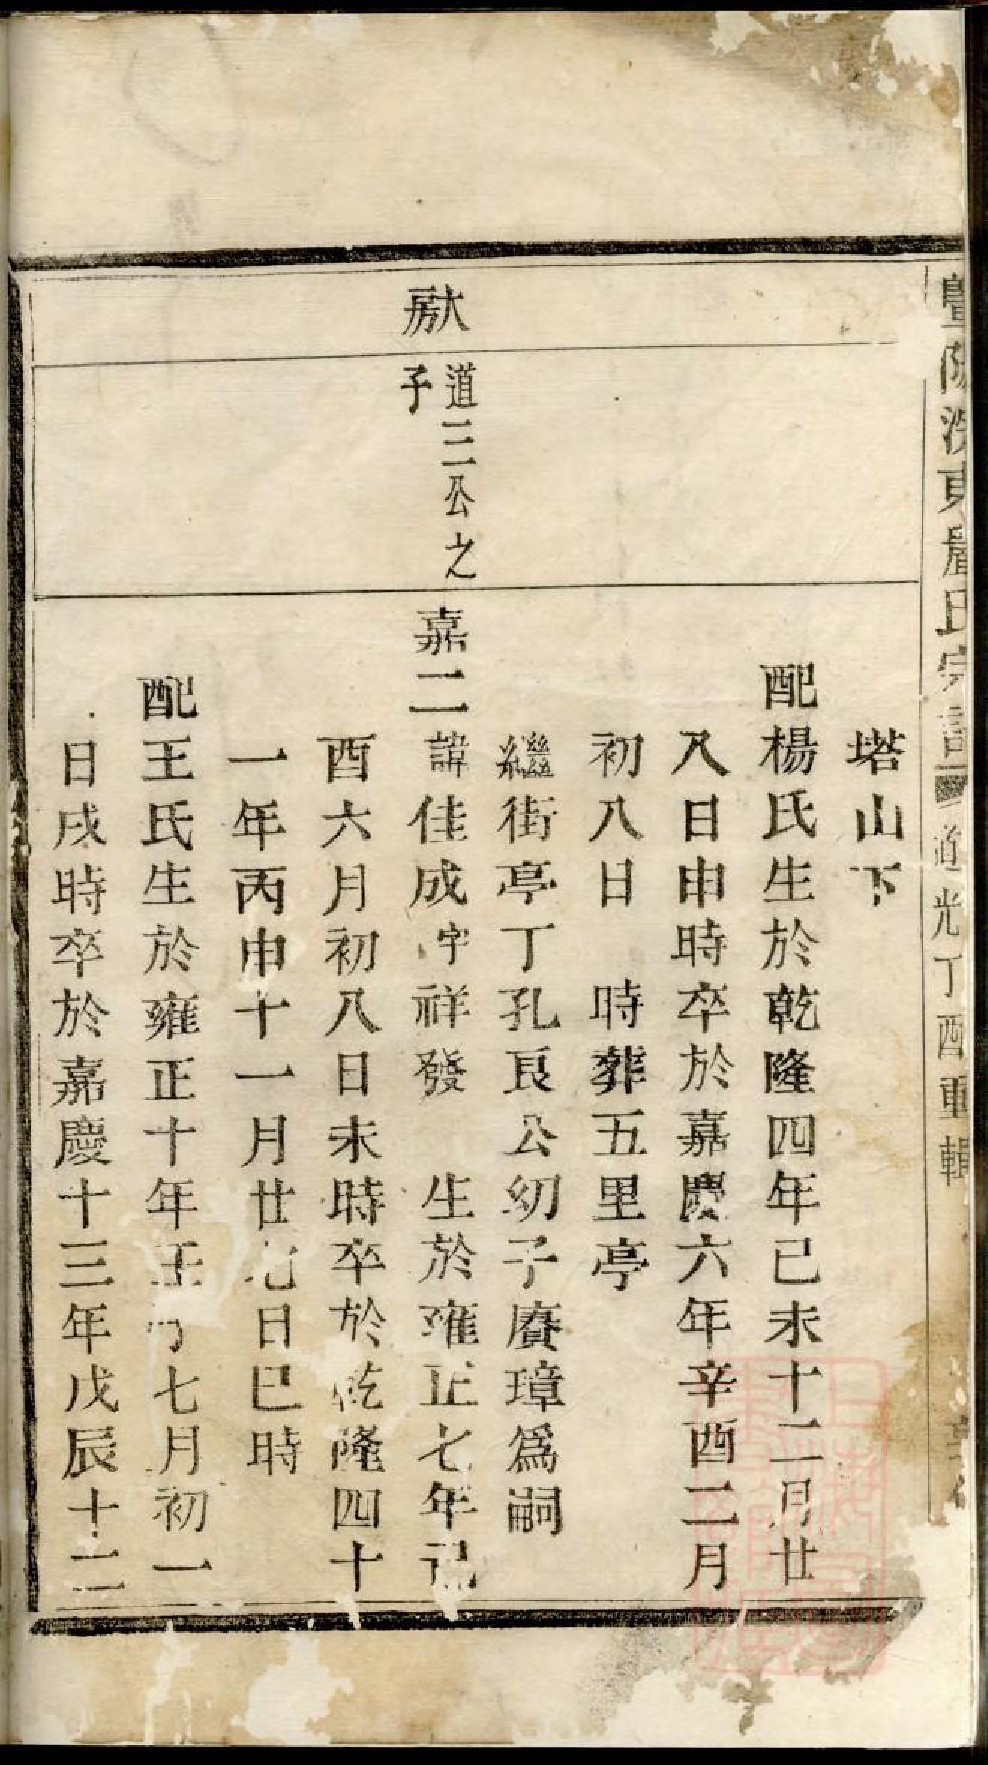 暨陽洪東盧氏宗譜 道光丁酉重輯
塔山下
配楊氏生於乾隆四年己未十二月廿
八日申時卒於嘉慶六年辛酉二月
初八日 時葬五里亭
繼街亭丁孔良公幼子賡璋爲嗣
大房
道三公之
子
嘉二諱佳成字祥發 生於雍正七年己
酉六月初八日未時卒於乾隆四十
一年丙申十一月廿七日巳時
配王氏生於雍正十年壬子七月初一
日戌時卒於嘉慶十三年戊辰十二